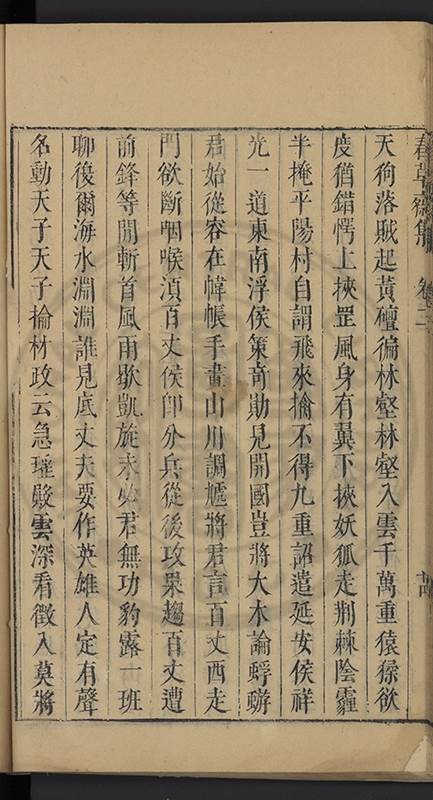 春草齋集 卷二
天狗落賊起黃礶徧林壑林壑入雲千萬重猿猱欲
度猶錯愕上挾罡風身有翼下挾妖狐走荆棘陰霾
半掩平陽村自謂飛來擒不得九重詔遣延安侯祥
光一道東南浮侯策奇勛見開國豈將大木論蜉蝣
君始從容在幃帳手畫山川調尵將君言百丈西走
門欲斷咽喉湏百丈侯卽分兵從後攻果趨百丈遭
前鋒等閒斬首風雨歇凱旋未必君無功豹露一班
聊復爾海水淵淵誰見底丈夫要作英雄人定有聲
名動天子天子掄材政云急璀殿雲深看徵入莫將